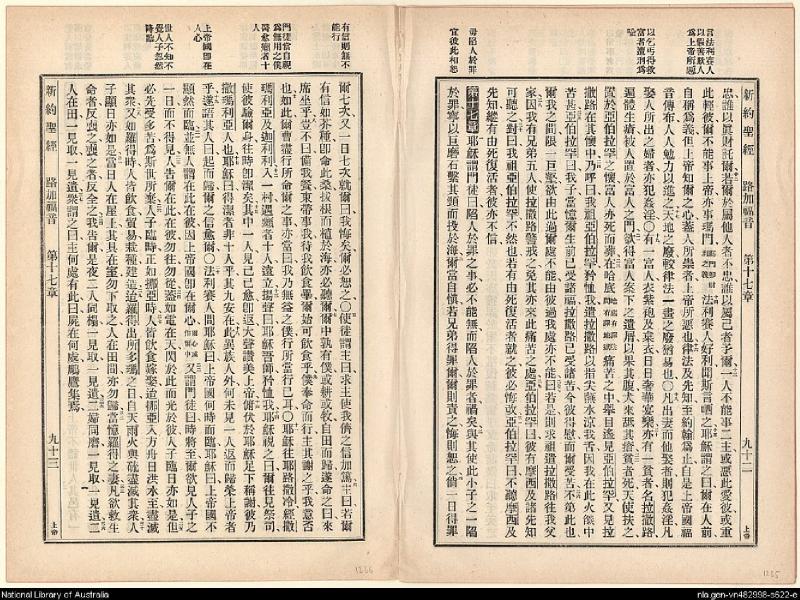 新約聖經 路加福音 第十七章 九十二 上帝
以乞丐得救
富者遭刑爲
毋陷人於罪
宜彼此和恕
忠誰以眞財託爾若爾於屬他人者不忠誰以屬己者予爾一人不能事二主或惡此愛彼或重
此輕彼爾不能事上帝亦事瑪門法利賽人好利聞斯言哂之耶穌謂之曰爾在人前
自稱爲義但上帝知爾之心蓋人所崇者上帝所惡也律法及先知至約翰爲止自是上帝國福
音傳布人人勉力以進之天地之廢較律法一畫之廢猶易也〇凡出妻而他娶者則犯姦淫凡
娶人所出之婦者亦犯姦淫〇有一富人衣紫袍及枲衣日日奢華宴樂亦有一貧者名拉撒路
遍體生瘡被人置於富人之門欲得富人案下之遺屑以果其腹犬來舐其瘡貧者死天使扶之
置於亞伯拉罕之懷富人亦死而葬在哈底痛苦之中舉目遙見亞伯拉罕又見拉
撒路在其懷中乃呼曰我祖亞伯拉罕矜恤我遣拉撒路以指尖蘸水涼我舌因我在此火燄中
苦甚亞伯拉罕曰我子當憶爾生前已受諸福拉撒路已受諸苦今彼得慰而爾受苦不第此也
爾我之間限一巨壑欲由此過爾處不能由彼過我處亦不能曰若是則求祖遣拉撒路往我父
家因我有兄弟五人使拉撒路警戒之免其亦來此痛苦之處亞伯拉罕曰彼有摩西及諸先知
可聽之對曰我祖亞伯拉罕不然也若有由死復活者就之彼必悔改亞伯拉罕曰不聽摩西及
先知縱有由死復活者彼亦不信
第十七章 耶穌謂門徒曰陷人於罪之事必不能無而陷人於罪者禍矣與其使此小子之一陷
於罪寧以巨磨石繫其頸而投於海爾當自愼若兄弟得罪爾爾則責之悔則恕之倘一日得罪
新約聖經 路加福音 第十七章 九十三 上帝
有信則無不
能行
門徒當自視
爲無用之僕
醫愈癩者十
人
上帝國即在
人心
世人不知不
覺人子忽然
降臨
爾七次又一日七次就爾曰我悔矣爾必恕之〇使徒謂主曰求主使我儕之信加篤主曰若爾
有信如芥種即命此桑拔根而植於海亦必聽爾爾中孰有僕或耕或牧自田而歸遂命之曰來
席坐乎豈不曰備我餐束帶事我待我飲食畢爾始可飲食乎僕奉命而行主其謝之乎我意否
也如此爾曹盡行所命爾之事亦當曰我乃無益之僕行所當行已耳〇耶穌往耶路撒冷經撒
瑪利亞及迦利利入一村遇癩者十人遠立揚聲曰耶穌吾師矜恤我耶穌視之曰爾往見祭司
使彼驗爾身往時即潔矣其中一人見己已愈即返大聲讚美上帝俯伏於耶穌足下稱謝彼乃
撒瑪利亞人也耶穌曰得潔者非十人乎其九安在此異族人外何未見一人返而歸榮上帝者
乎遂語其人曰起而歸爾之信愈爾〇法利賽人問耶穌曰上帝國何時而臨耶穌曰上帝國不
顯然而臨並無人謂在此在彼因上帝國即在爾心又謂門徒曰時將至爾欲見人子之
一日而不得見人告爾在此在彼勿往勿從蓋如電在天閃於此而光於彼人子臨日亦如是但
必先受多苦爲斯世所棄人子臨時正如挪亞時人皆飲食嫁娶迨挪亞入方舟日洪水至盡滅
其衆又如羅得時人皆飲食貿易栽種建造迨羅得出所多瑪之日自天雨火與硫盡滅其衆人
子顯日亦如是當日人在屋上其具在室勿下取之人在田間亦勿歸當憶羅得之妻凡欲救生
命者反喪之喪之者反全之我告爾是夜二人同榻一見取一見遺二婦同磨一見取一見遺二
人在田一見取一見遺衆謂之曰主何處有此曰屍在何處鵰鷹集焉
1266
1265
National Library of Australia
nla.gen-vn482998-s622-e